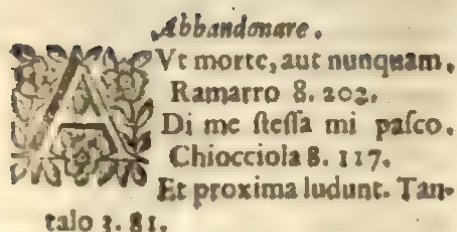 Abbandonare.
AVt morte, aut nunquam.
Ramarro 8. 202.
Di me ſteſſa mi paſco.
Chiocciola 8. 117.
Et proxima ludunt. Tan-
talo 3. 81.